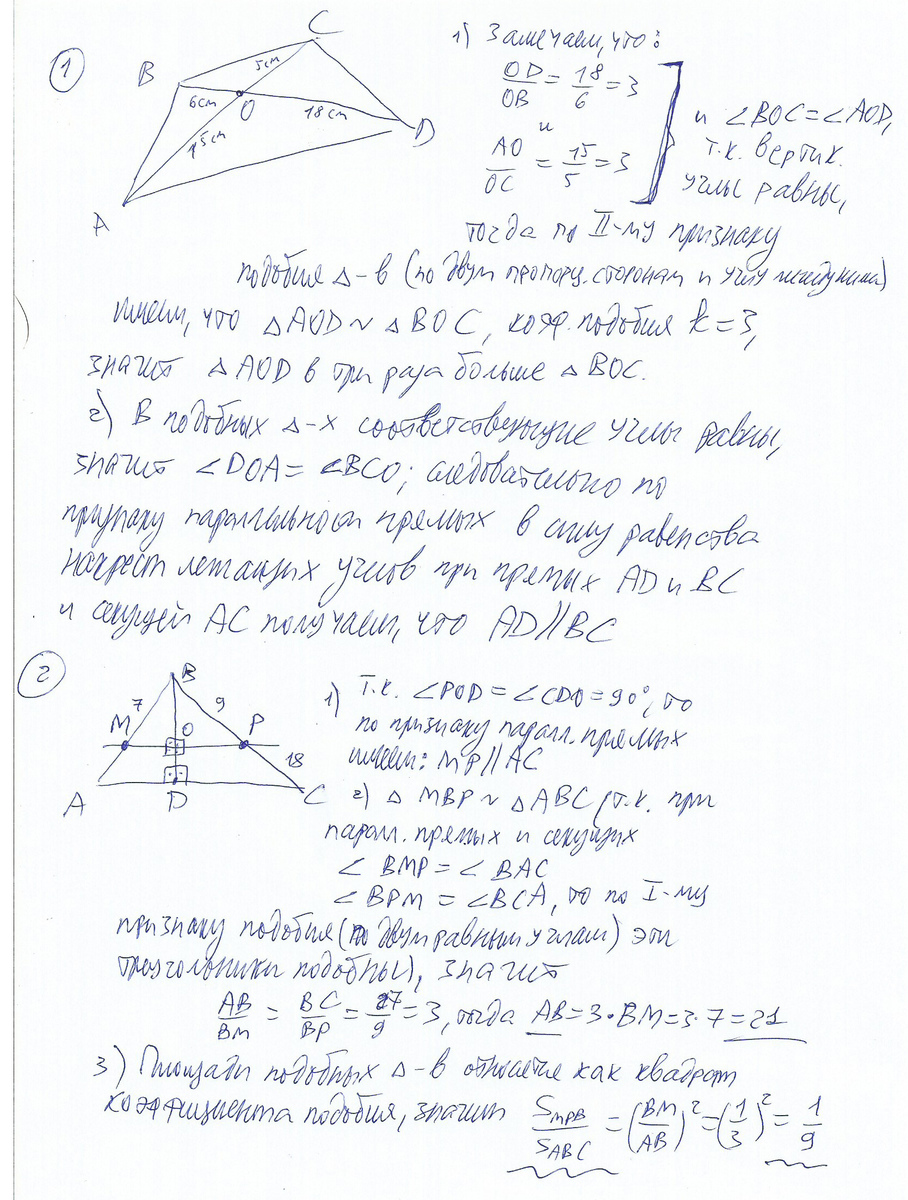 1
C
B
5см
6см
O
18см
15см
D
A
1) Замечаем, что:
OD/OB = 18/6 = 3
и
AO/OC = 15/5 = 3
и ∠BOC = ∠AOD,
т.к. вертик.
углы равны,
тогда по II-му признаку
подобия Δ-в (по двум пропорц. сторонам и углу между ними)
имеем, что ΔAOD ~ ΔBOC, коэф. подобия k = 3,
значит ΔAOD в три раза больше ΔBOC.
2) В подобных Δ-х соответствующие углы равны,
значит ∠DOA = ∠BCO; следовательно по
признаку параллельности прямых в силу равенства
накрест лежащих углов при прямых AD и BC
и секущей AC получаем, что AD∥BC
2
B
7
9
M
O
P
18
A
D
C
1) Т.к. ∠POD = ∠CDO = 90°, то
по признаку паралл. прямых
имеем: MP∥AC
2) Δ MBP ~ Δ ABC (т.к. при
паралл. прямых и секущих
∠ BMP = ∠ BAC
∠ BPM = ∠BCA, то по I-му
признаку подобия (по двум равным углам) эти
треугольники подобны), значит
AB/BM = BC/BP = 27/9 = 3, тогда AB = 3·BM = 3·7 = 21
3) Площади подобных Δ-в относятся как квадрат
коэффициента подобия, значит S_MPB/S_ABC = (BM/AB)² = (1/3)² = 1/9